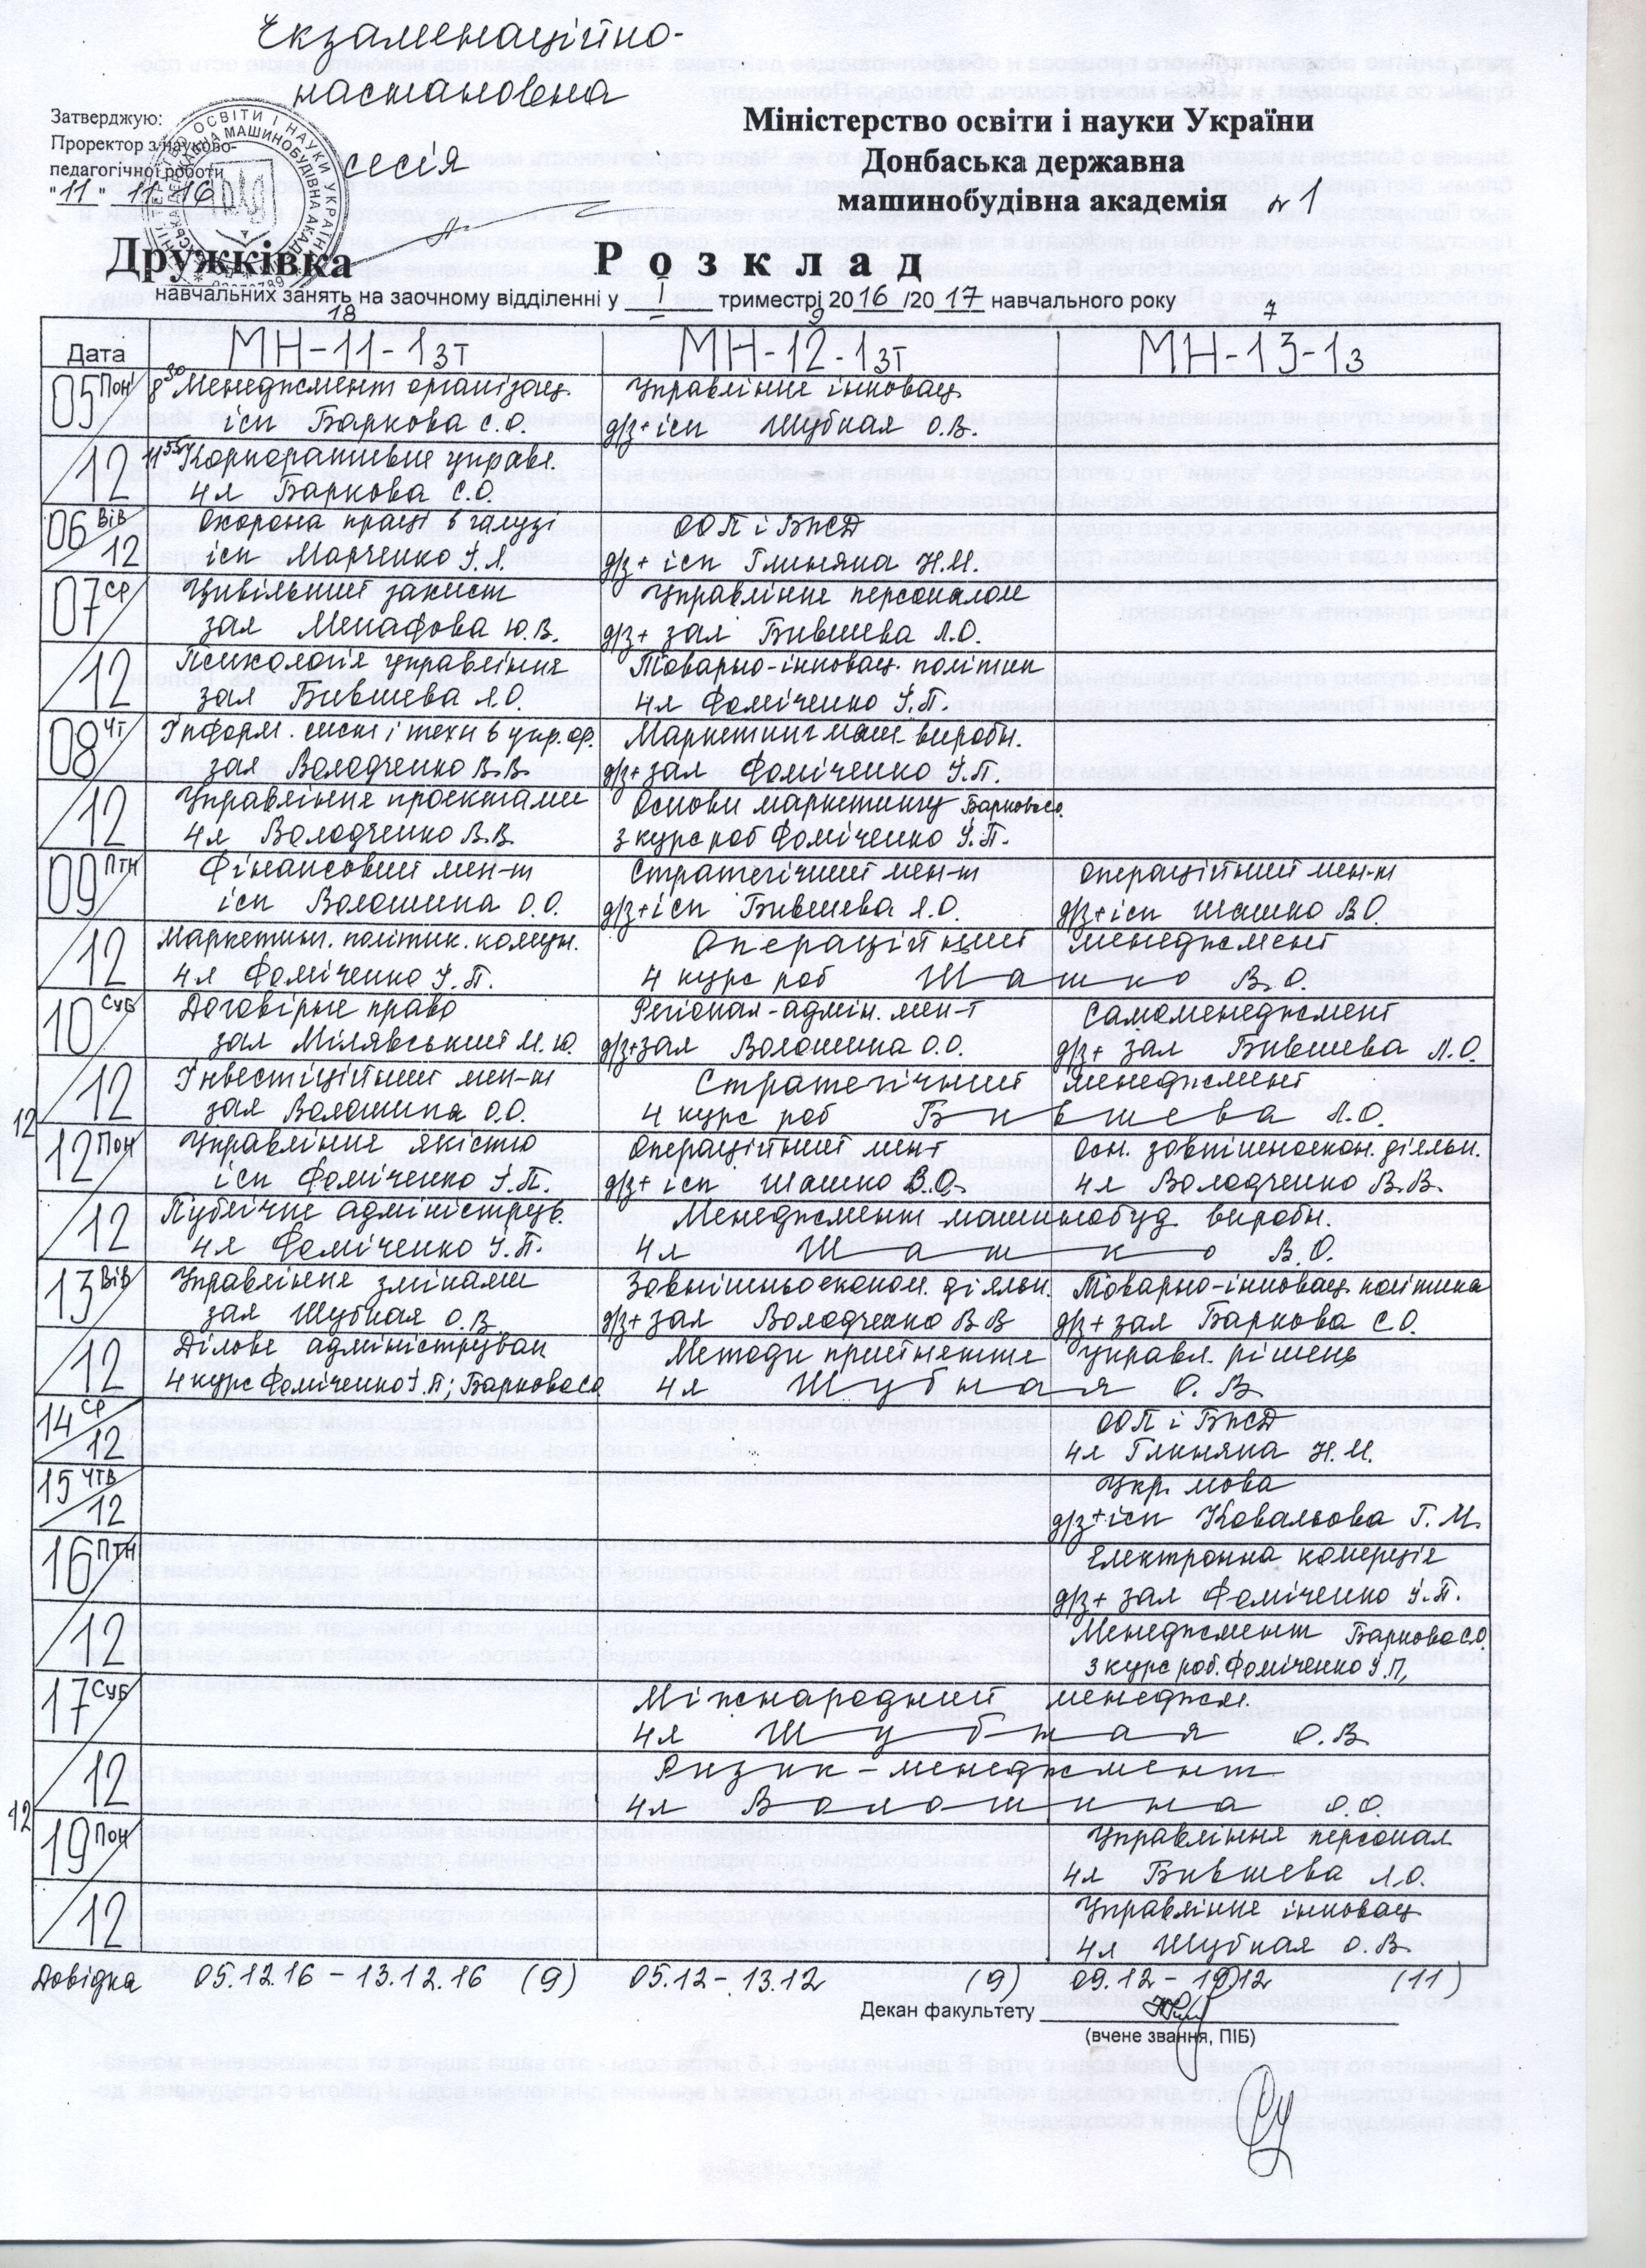 Екзаменаційно-
настановена
сесія
Затверджую:
Проректор з науково-
педагогічної роботи
"11" 11 16
Міністерство освіти і науки України
Донбаська державна
машинобудівна академія
№1
Дружківка
Розклад
навчальних занять на заочному відділенні у І триместрі 2016/2017 навчального року
18 9 7
Дата МН-11-1зт МН-12-1зт МН-13-1з
05 Пон 8 30 Менеджмент організац. Управліние інновац
ісп Баркова С.О. д/з+ісп Шубная О.В.
12 11 55 Корпоративне управл.
4л Баркова С.О.
06 Вів Охорона праці в галузі ООП і БЖД
12 ісп Марченко І.Л. д/з+ ісп Глиняна Н.М.
07 Ср Цивільний захист Управління персоналом
зал Мепафова Ю.В. д/з+ зал Бившева Л.О.
12 Психологія управління Товарно-інновац. політик
зал Бившева Л.О. 4л Фоміченко І.П.
08 Чт Інформ. сист і техн в упр. ор. Маркетинг маш виробн.
зал Володченко В.В. д/з+ зал Фоміченко І.П.
12 Управління проектами Основи маркетингу Баркова С.О.
4л Володченко В.В. 3 курс роб Фоміченко І.П.
09 Птн Фінансовий мен-т Стратегічний мен-т Операційний мен-т
ісп Волошина О.О. д/з+ісп Бившева Л.О. д/з+ісп Шашко В.О.
12 Маркетин. політик. комун. Операційний менеджмент
4л Фоміченко І.П. 4 курс роб Шашко В.О.
10 Суб Договірне право Регіонал-адмін. мен-т Самоменеджмент
зал Мілявський М.Ю. д/з+зал Волошина О.О. д/з+ зал Бившева Л.О.
12 Інвестиційний мен-т Стратегічний менеджмент
зал Волошина О.О. 4 курс роб Бившева Л.О.
12
12 Пон Управління якістю Операційний мен-т Осн. зовнішньоекон. діяльн.
ісп Фоміченко І.П. д/з+ ісп Шашко В.О. 4л Володченко В.В.
12 Публічне адмініструв. Менеджмент машинобуд. виробн.
4л Фоміченко І.П. 4л Шашко В.О.
13 Вів Управління змінами Зовнішньоеконом. діяльн. Товарно-інновац політика
зал Шубная О.В д/з+ зал Володченко В.В д/з+ зал Баркова С.О.
12 Ділове адмініструван Методи прийняття управл. рішень
4 курс Фоміченко І.П; Баркова СО 4л Шубная О.В
14 Ср ООП і БЖД
12 4л Глиняна Н.М.
15 Чтв Укр. мова
12 д/з+ісп Ковальова Г.М.
16 Птн Електронна комерція
д/з+ зал Фоміченко І.П.
12 Менеджмент Баркова С.О.
3 курс роб. Фоміченко І.П,
17 Суб Міжнародний менеджм.
4л Шубная О.В
12 Ризик-менеджмент
4л Волошина О.О.
12
19 Пон Управління персонал
4л Бившева Л.О.
12 Управління інновац
4л Шубная О.В
Довідка 05.12.16 - 13.12.16 (9) 05.12 - 13.12 (9) 09.12 - 19.12 (11)
Декан факультету
(вчене звання, ПІБ)